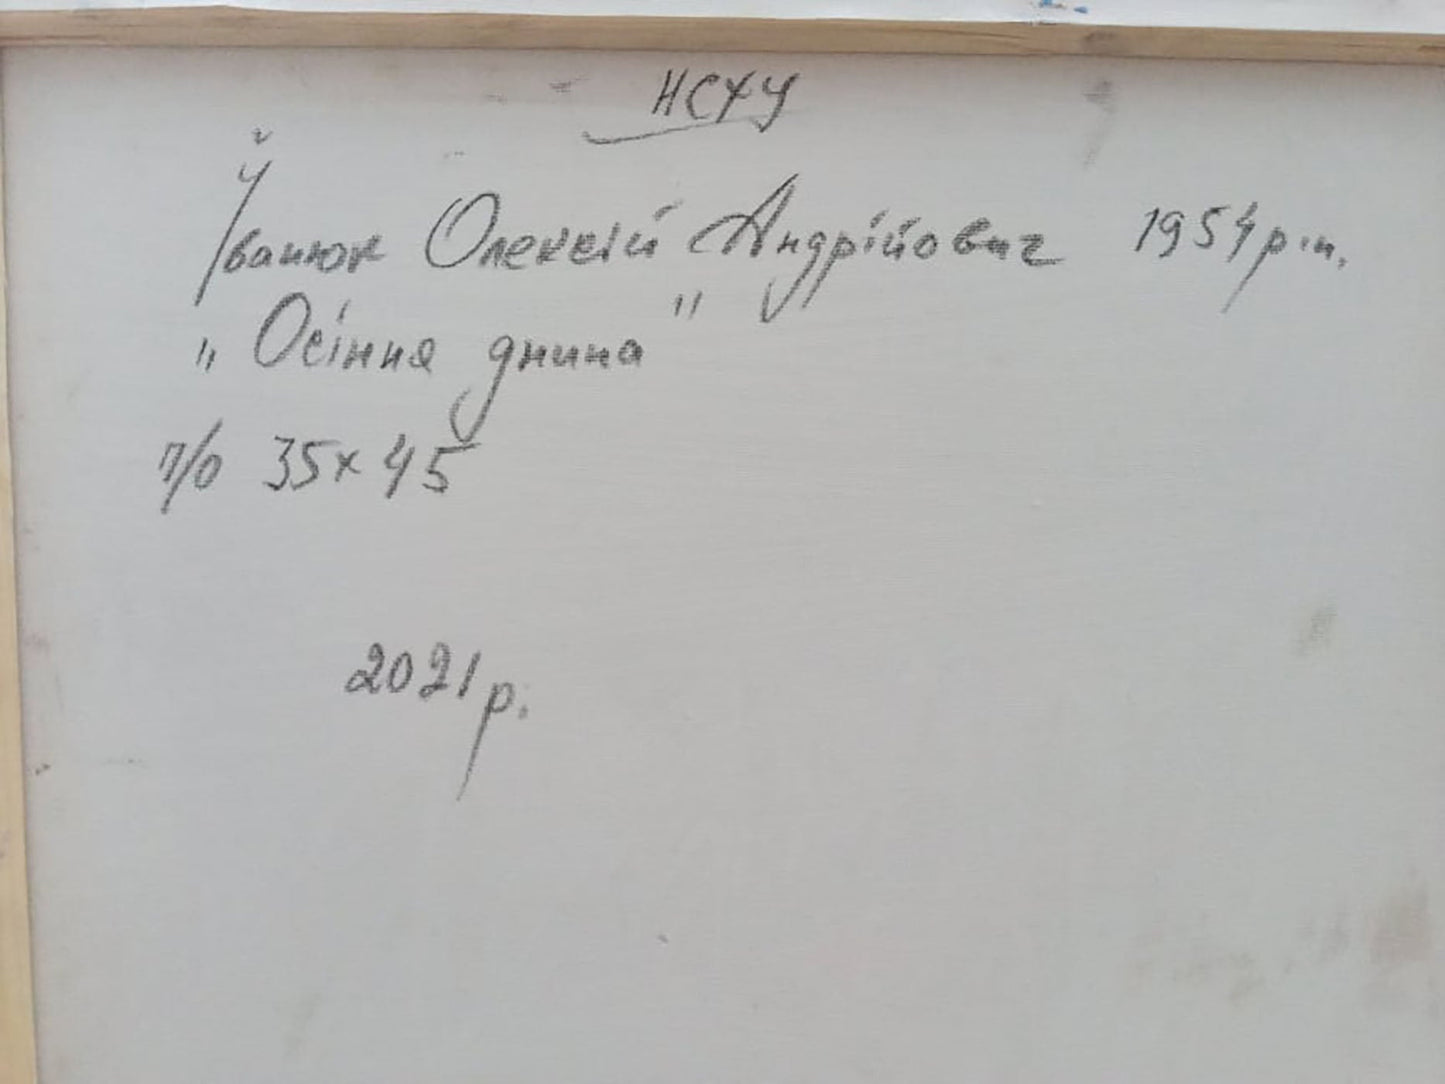 НСХУ
Іванюк Олексій Андрійович 1954 р.н.
„Осіння днина"
п/о 35х45
2021р.